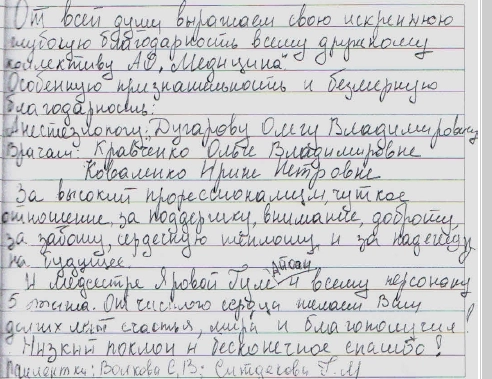 От всей душу выражаем свою искреннюю
глубокую благодарность всему дружному
коллективу АО „Медицина".
Особенную признательность и безмерную
благодарность:
Анестезиологу: Дугарову Олегу Владимировичу
Врачам: Кравченко Ольге Владимировне
Коваленко Ирине Петровне
За высокий профессионализм, чуткое
отношение, за поддержку, внимание, доброту,
за заботу, сердечную теплоту и за надежду
на будущее.
И медсестре Яровой и всему персоналу
5 этажа. От чистого сердца желаем Вам
долгих лет счастья, мира и благополучия!
Низкий поклон и бесконечное спасибо!
Пациентки: Волкова С.В; Г.М